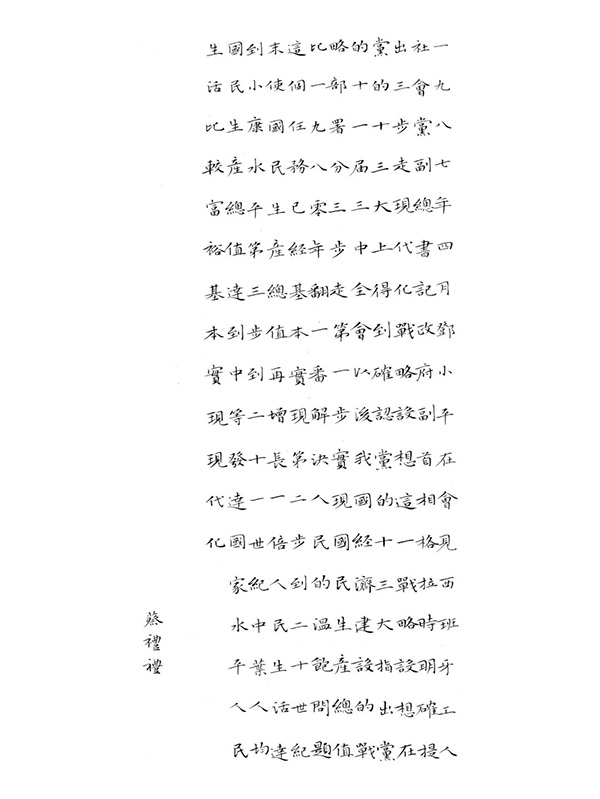 一九八七年四月鄧小平在會見西班牙工人
社會黨副總書記改府副首相格拉時明確提
出三步走現代化戰略設想這一戰略設想在
黨的十三大上得到確認黨的十三大指出黨
的十一屆三中全會以後我國經濟建設的戰
略部署分三步走第一步實現國民生產總值
比一九八零年翻一番解決人民的溫飽問題
這個任務已經基本實現第二步到二十世紀
末使國民生產總值再增長一倍人民生活達
到小康水平第三步到二十一世紀中葉人均
國民生產總值達到中等發達國家水平人民
生活比較富裕基本實現現代化
蔡禮禮